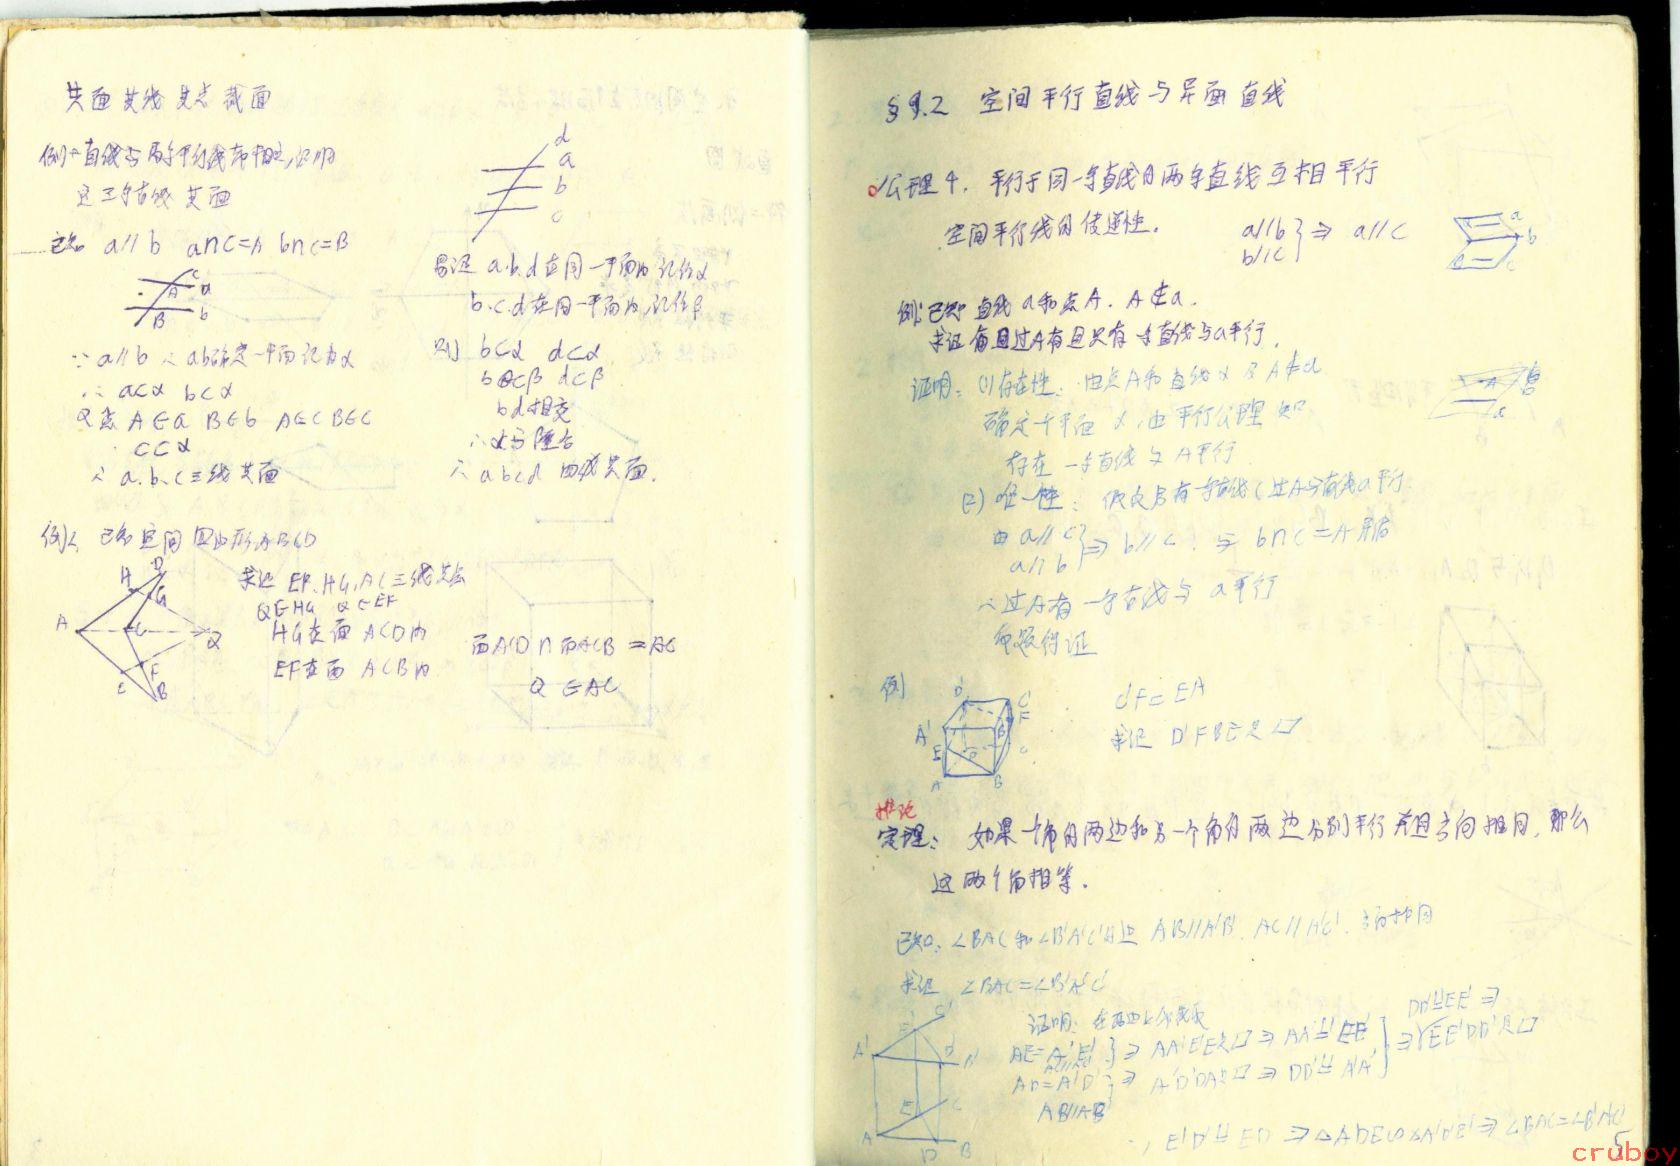 共面 共线 共点 截面
例1 一直线与两条平行线都相交,证明
这三条直线共面
已知 a∥b a∩c=A b∩c=B
c
A a
B b
∵ a∥b ∴ ab确定一平面记为α
∴ a⊂α b⊂α
又点 A∈a B∈b A∈c B∈c
c⊂α
∴ a、b、c三线共面
d
a
b
c
另证 a、b、d在同一平面内 记作α
b、c、d在同一平面内,记作β
则 b⊂α d⊂α
b⊂β d⊂β
bd相交
∴ α与β重合
∴ a b c d 四线共面.
例2 已知空间四边形ABCD
求证 EF、HG、AC三线共点
Q∈HG Q∈EF
HG在面 ACD内
EF在面 ACB内
面ACD∩面ACB=AC
Q∈AC
H D
G
A C Q
F
E B
§9.2 空间平行直线与异面直线
公理4. 平行于同一条直线的两条直线互相平行
空间平行线的传递性.
a∥b
b∥c } ⇒ a∥c
a
b
c
例:已知 直线a和点A. A∉a.
求证 过A有且只有一条直线与a平行.
证明:(1)存在性:由点A和直线a及A∉a
确定一个平面α,由平行公理知
存在一条直线 A平行
(2)唯一性:假设另有一条直线c过A与直线a平行
由 a∥c
a∥b } ⇒ b∥c 与 b∩c=A 矛盾
∴ 过A有一条直线与a平行
命题得证
例
D' C'
F
A' B'
E D C
A B
C'F=EA
求证 D'FBE是▱
推论
定理:如果一个角的两边和另一个角的两边分别平行并且方向相同,那么
这两个角相等.
已知:∠BAC和∠B'A'C'的边 AB∥A'B'. AC∥A'C'. 方向相同
求证 ∠BAC=∠B'A'C'
证明:在两边上分别截取
AE=A'E' } ⇒ AA'E'E是▱ ⇒ AA'⩭EE'
AD=A'D' } ⇒ A'D'DA是▱ ⇒ DD'⩭AA'
AB∥A'B'
DD'⩭EE' ⇒
⇒ EE'DD'是▱
∴ E'D'⩭ED ⇒ △ADE∽△A'D'E' ⇒ ∠BAC=∠B'A'C'
C'
E'
A' D' B'
E C
A D B
5
cruboy